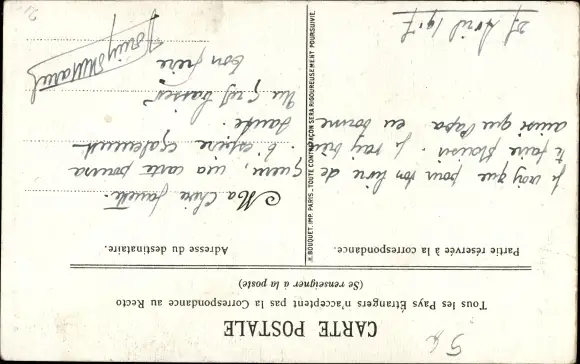 CARTE POSTALE
Tous les Pays Étrangers n'acceptent pas la Correspondance au Recto
(Se renseigner à la poste)
Partie réservée à la correspondance.
Je vois que pour ton livre de
te faire plaisir. Je vais bien
ainsi que Papa en bonne
27 Avril 1917
A. BOUQUET, IMP. PARIS - TOUTE CONTREFAÇON SERA RIGOUREUSEMENT POURSUIVIE.
Adresse du destinataire.
Ma Chère
ma carte pourra
j'espère également
santé.
Un gros baiser
ton frère